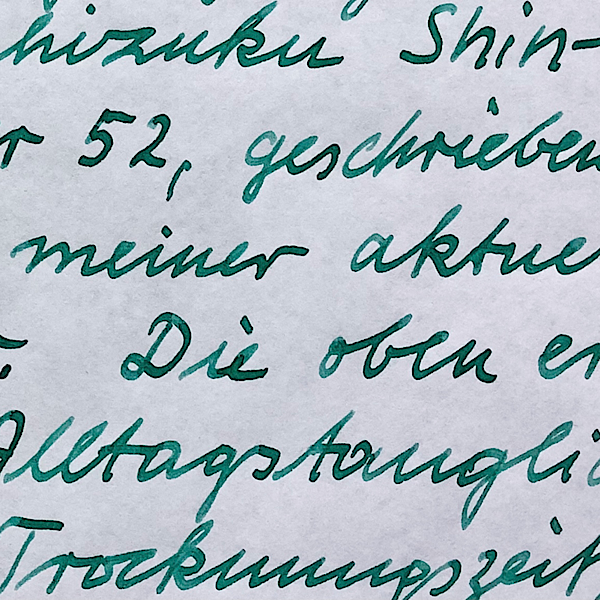 hizuku Shin-
r 52, geschrieben
meiner aktue
. Die oben er
Alltagstauglic
Trocknungszeit